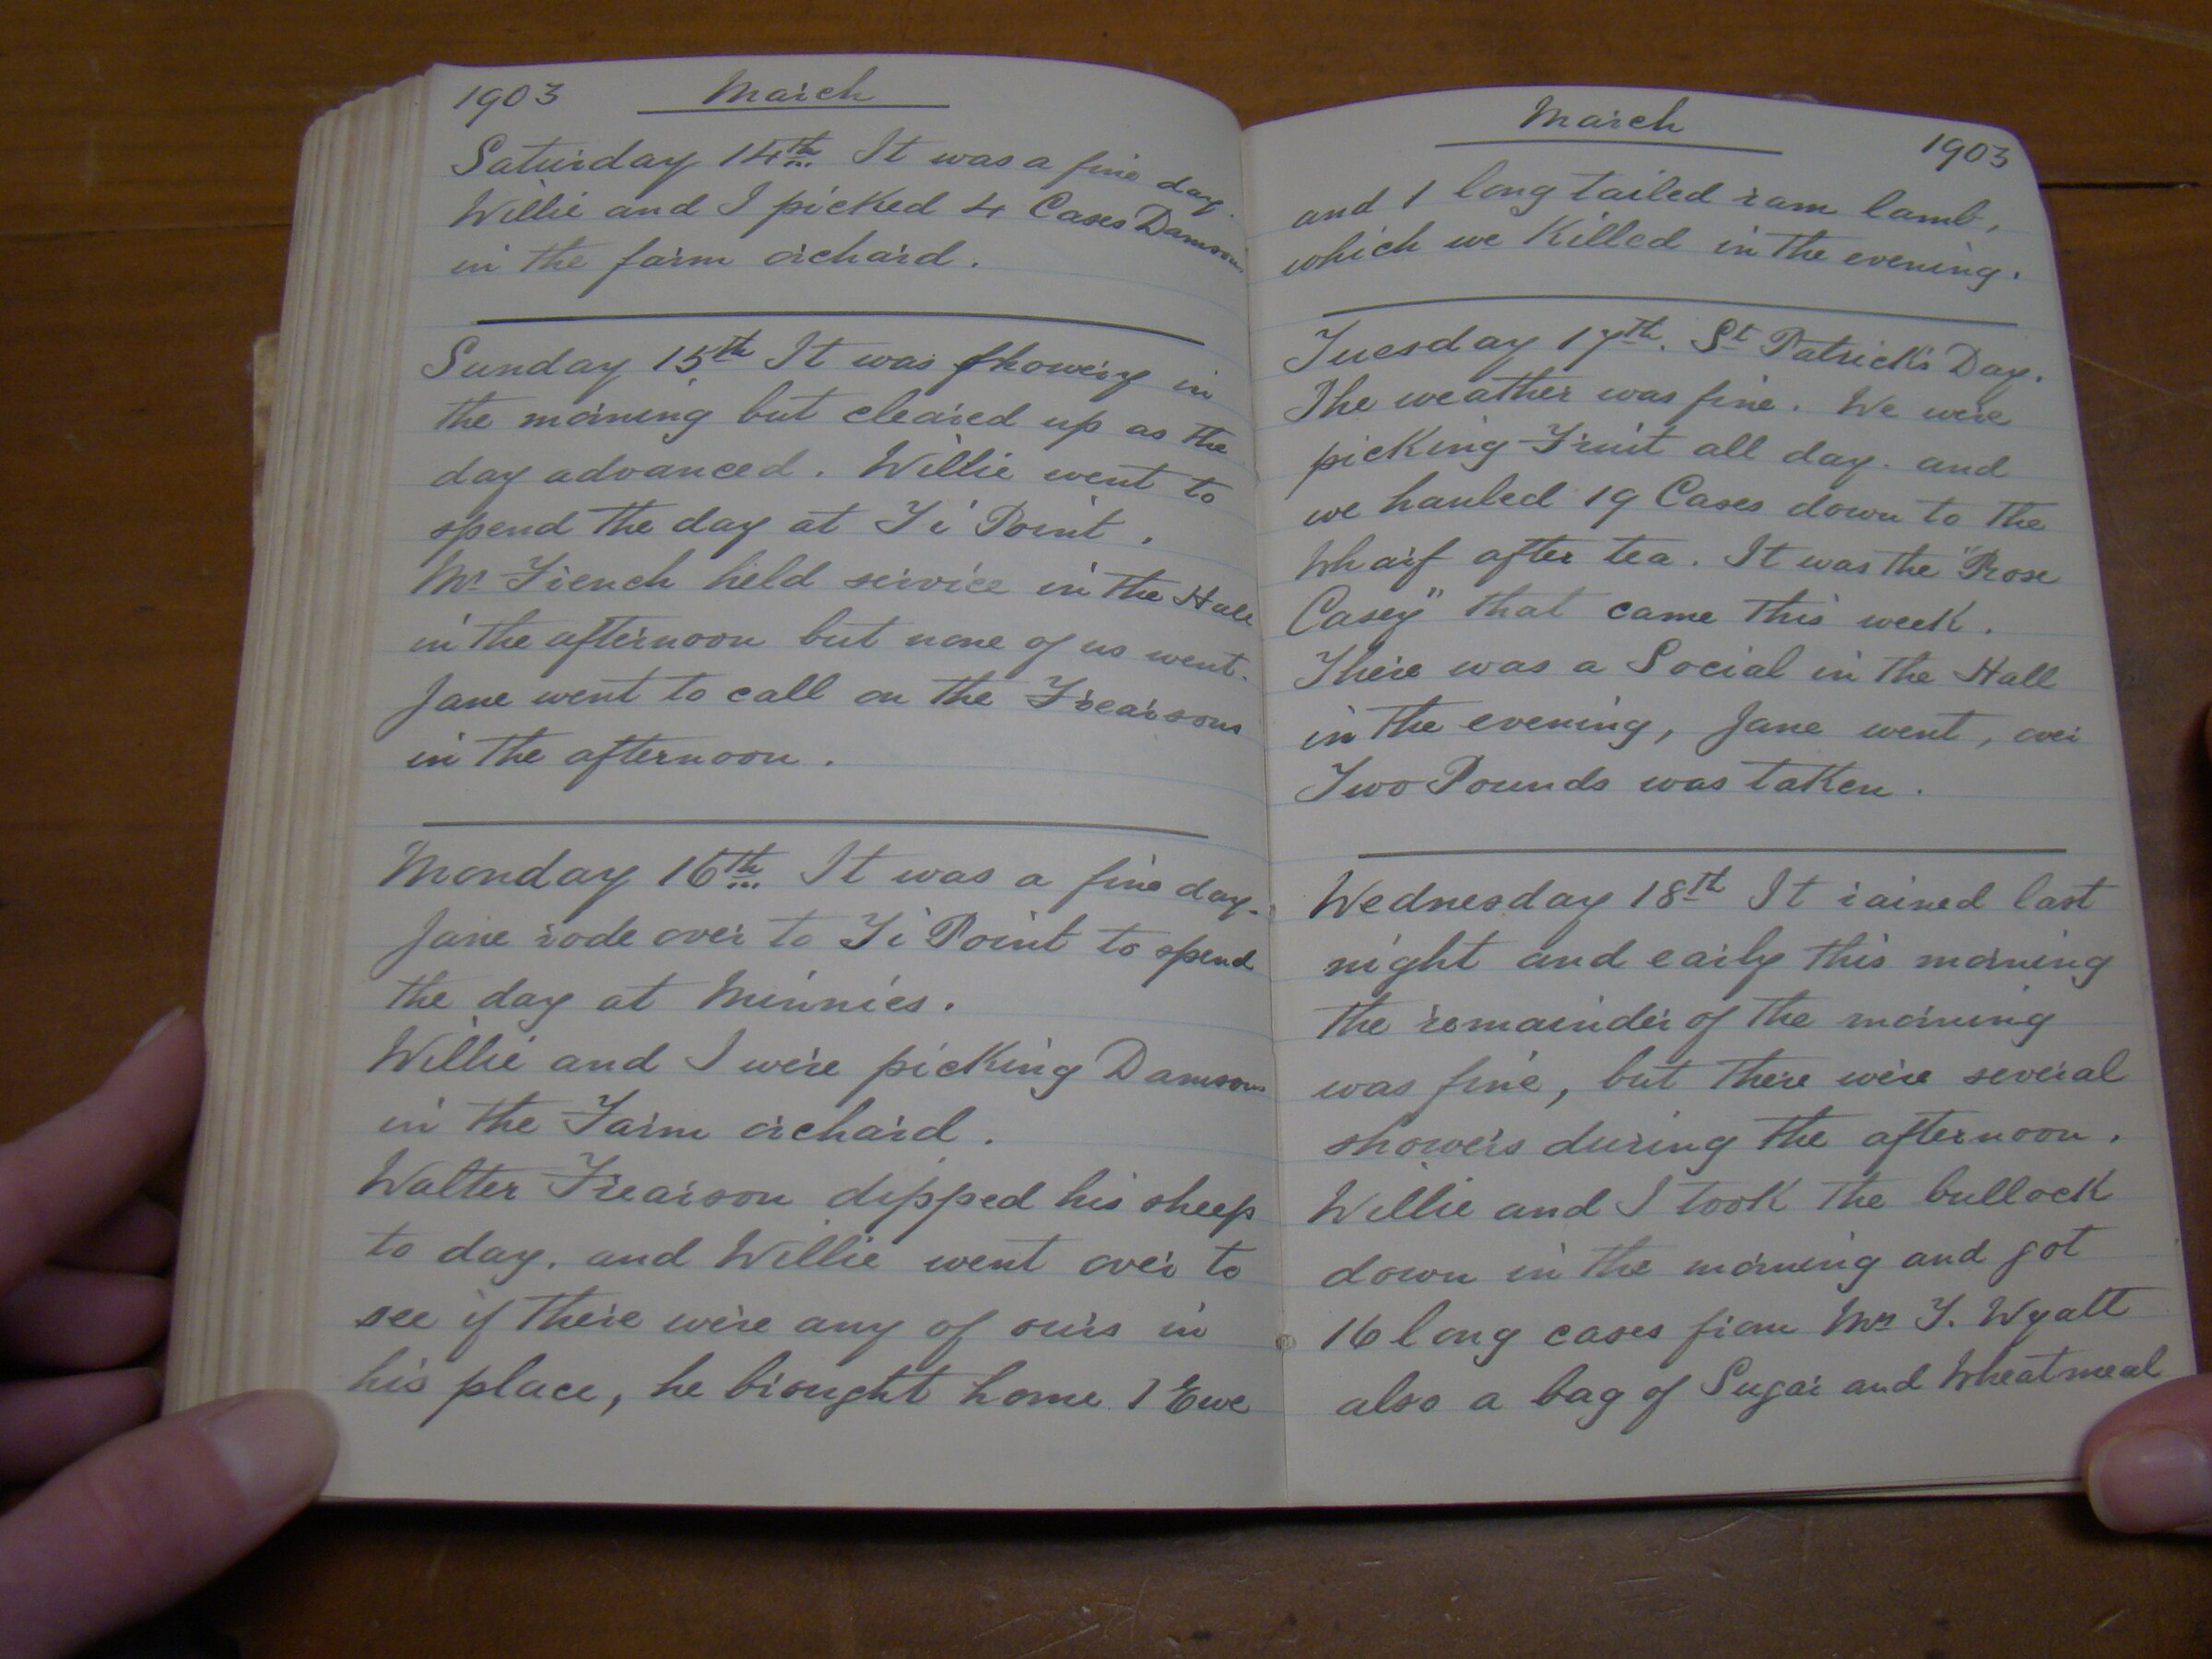 1903 March
Saturday 14th It was a fine day.
Willie and I picked 4 Cases Damsons
in the farm orchard.
Sunday 15th It was showery in
the morning but cleared up as the
day advanced. Willie went to
spend the day at Ti Point.
Mr French held service in the Hall
in the afternoon but none of us went.
Jane went to call on the Frearsons
in the afternoon.
Monday 16th It was a fine day.
Jane rode over to Ti Point to spend
the day at Minnies.
Willie and I were picking Damsons
in the Farm orchard.
Walter Frearson dipped his sheep
to day, and Willie went over to
see if there were any of ours in
his place, he brought home 1 Ewe
March 1903
and 1 long tailed ram lamb,
which we Killed in the evening.
Tuesday 17th. St Patrick's Day.
The weather was fine. We were
picking Fruit all day. and
we hauled 19 Cases down to the
Wharf after tea. It was the "Rose
Casey" that came this week.
There was a Social in the Hall
in the evening, Jane went, over
Two Pounds was taken.
Wednesday 18th It rained last
night and early this morning
the remainder of the morning
was fine, but there were several
showers during the afternoon.
Willie and I took the bullock
down in the morning and got
16 long cases from Mrs T. Wyatt
also a bag of Sugar and Wheatmeal